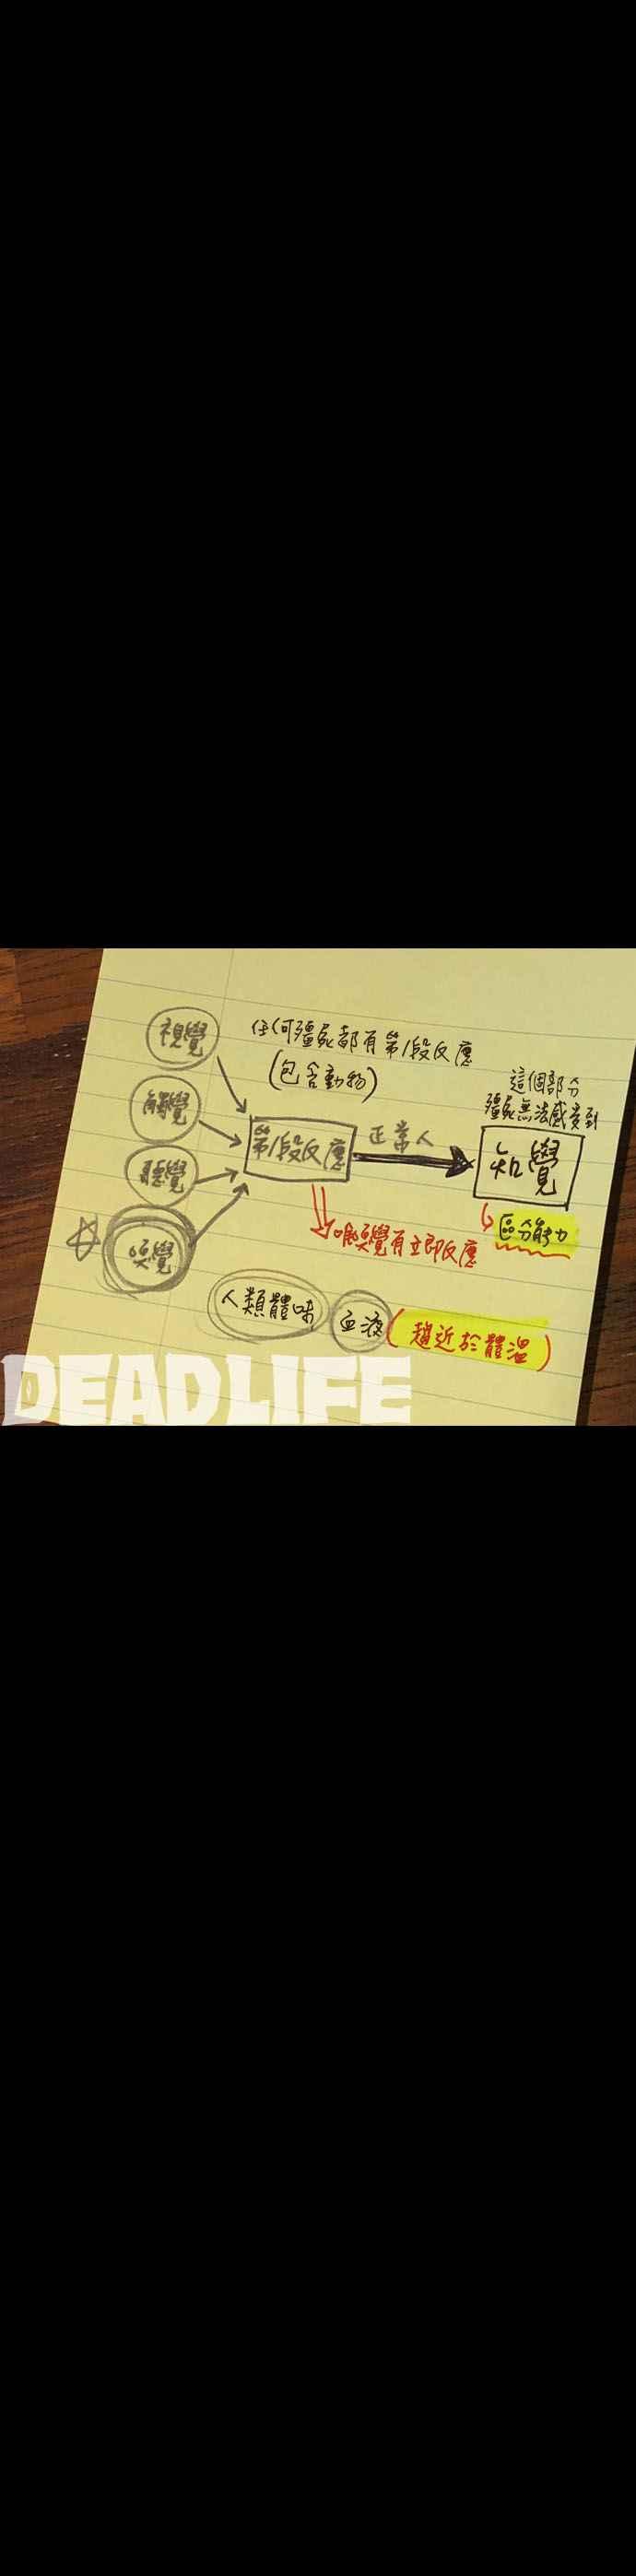 視覺
任何殭屍都有第1段反應
(包含動物)
這個部分
殭屍無法感受到
觸覺
第1段反應
正常人
知覺
聽覺
區分能力
嗅覺
唯嗅覺有立即反應
人類體味
血液
(趨近於體溫)
DEADLIFE